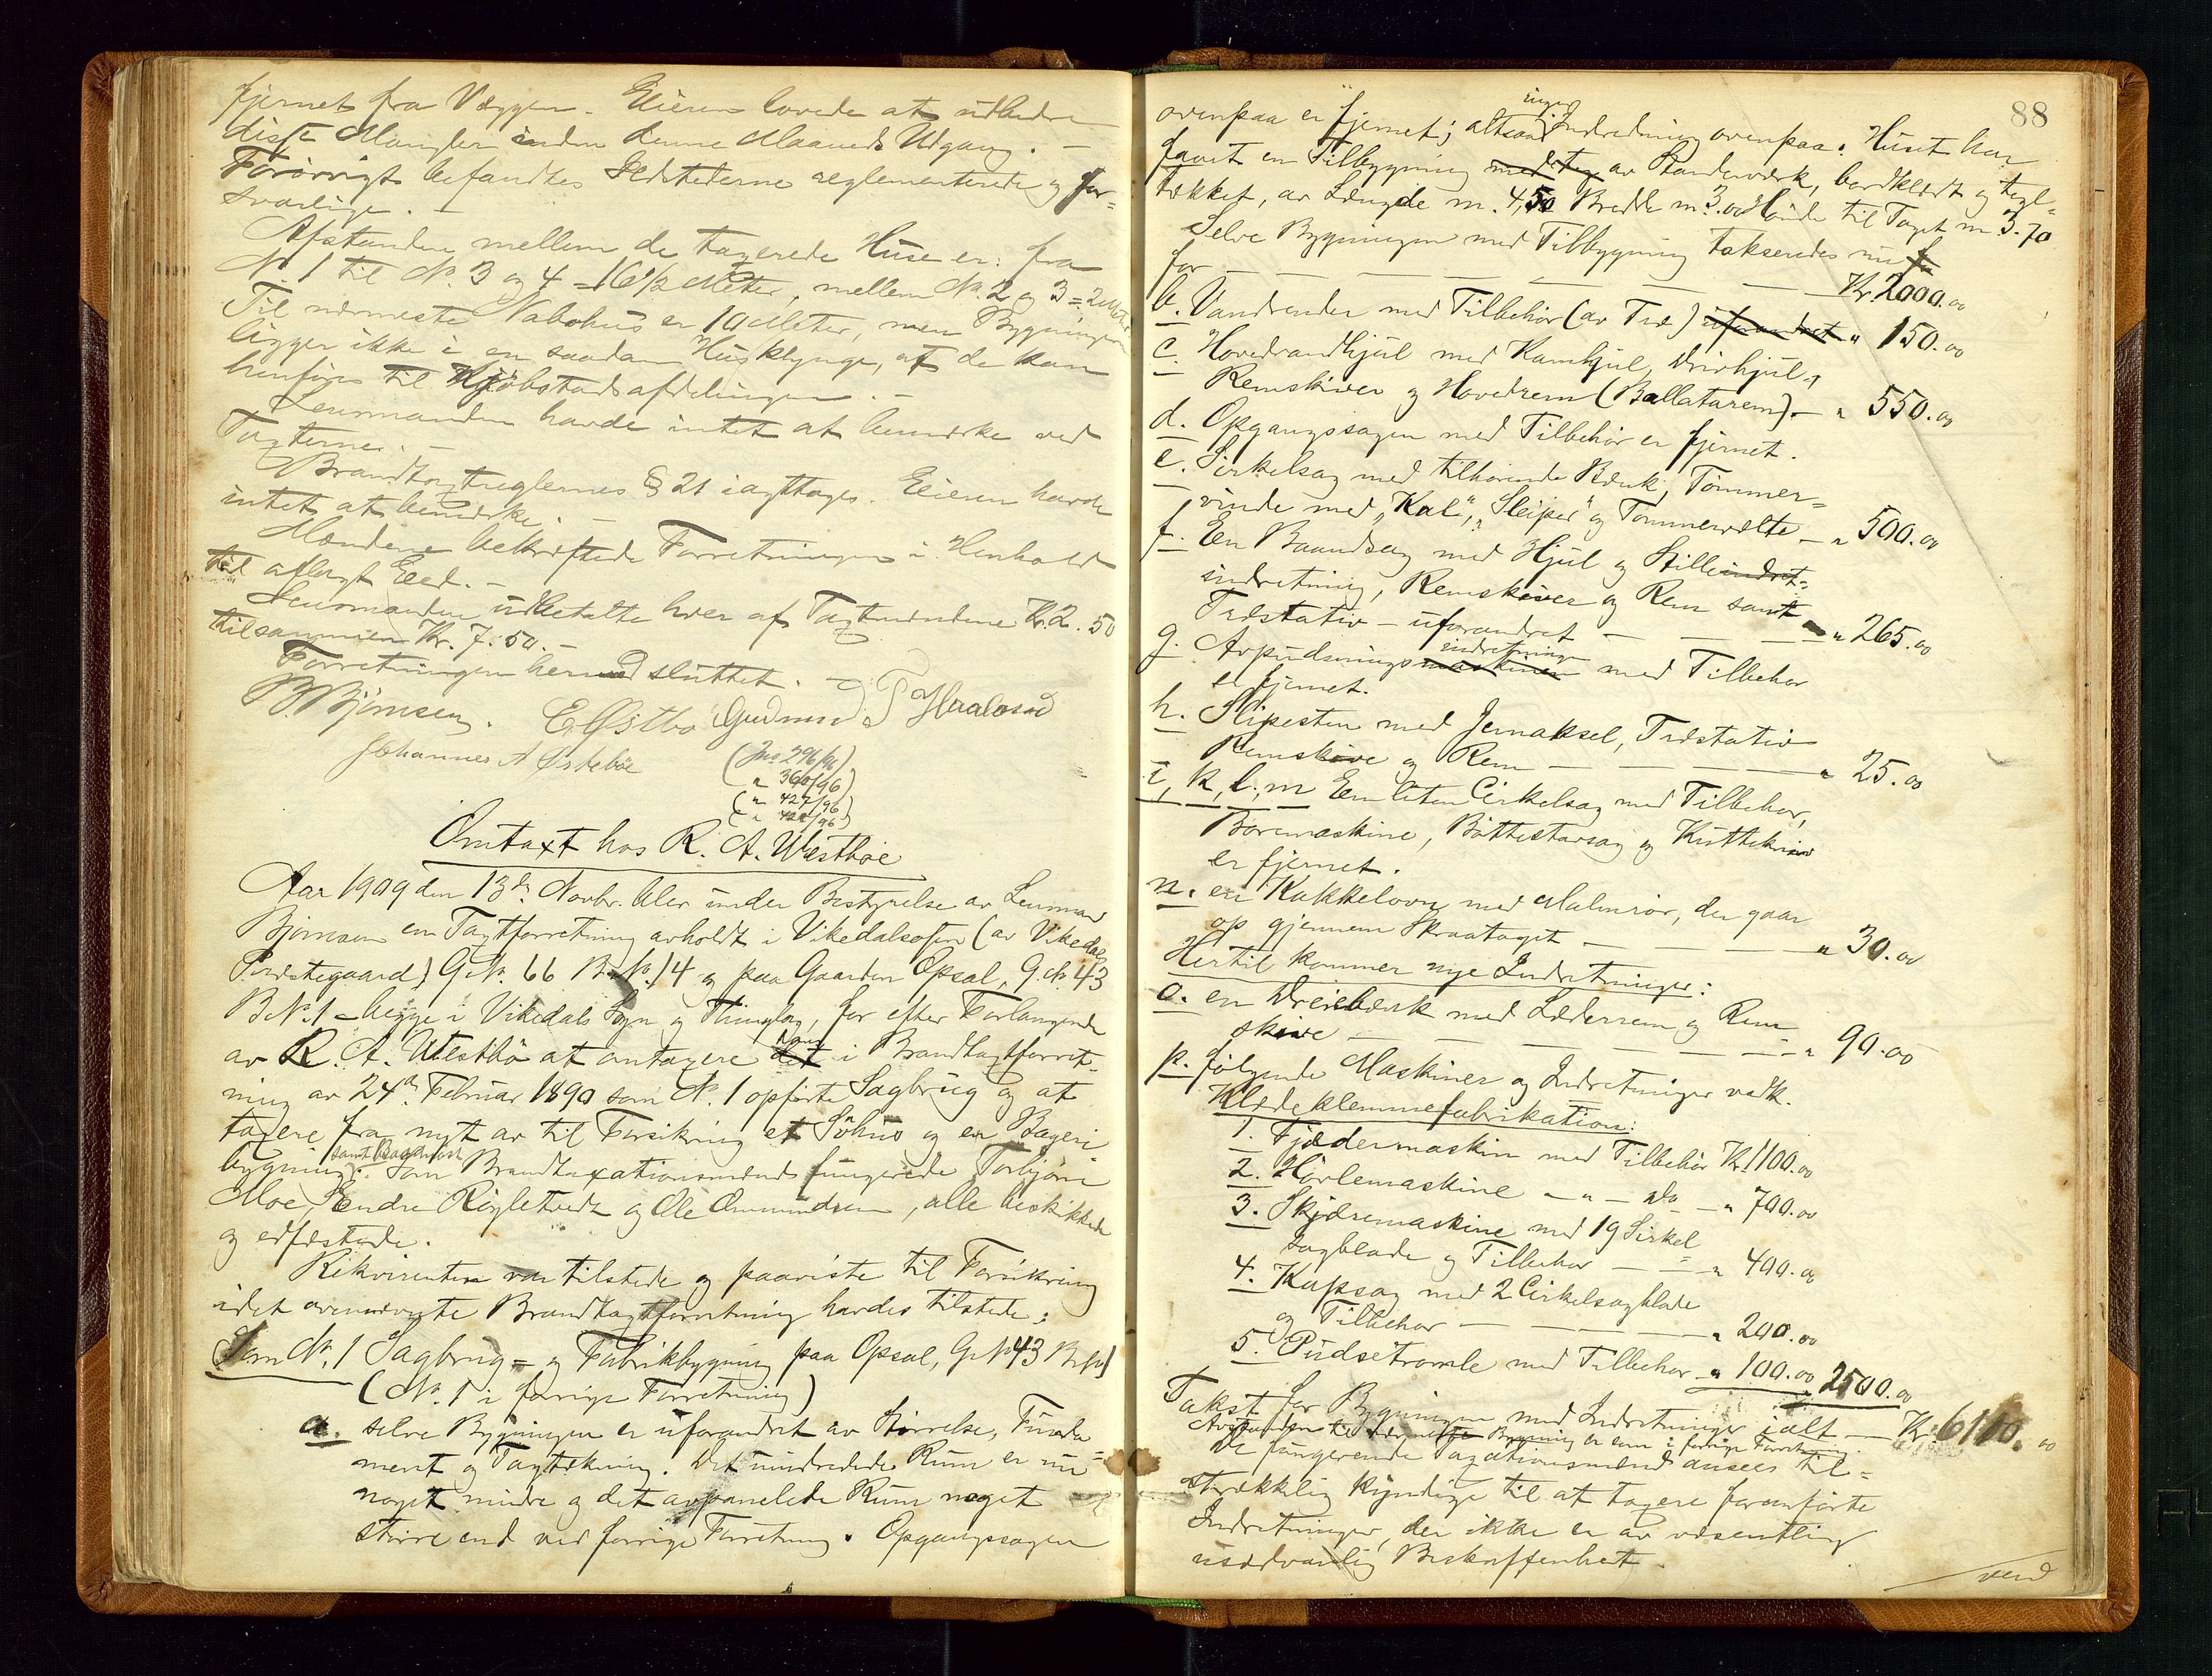 fjernet fra Væggen. Eieren lovede at udbedre
disse Mangler inden denne Maaneds Udgang. –
Forøvrigt befandtes Ildstederne reglementerede og for-
svarlige. –
Afstanden mellem de taxerede Huse er: fra
No 1 til No. 3 og 4 = 16½ Meter, mellem No. 2 og 3 = 2 Meter
Til nærmeste Nabohus er 10 Meter, men Bygningen
ligger ikke i en saadan Husklynge, at de kan
henføres til Kjøbstadsafdelingen. –
Lensmanden havde intet at bemærke ved
Taxterne. –
Brandtaxtreglernes § 21 iagttages. Eieren havde
intet at bemærke. –
Mændene bekræftede Forretningen i Henhold
til aflagt Eed. –
Lensmanden udbetalte hver af Taxtmændene Kr. 2.50
tilsammen Kr. 7.50. –
Forretningen hermed sluttet. –
B. Bjørnsen. E Østbø Gudmund T Haaland
Johannes A Østebøe
(Jno 296/96)
(" 360/96)
(" 427/96)
(" 428/96)
Omtaxt hos R. A. Westbøe
Aar 1909 den 13de Novbr. blev under Bestyrelse av Lensmand
Bjørnsen en Taxtforretning avholdt i Vikedalsosen (av Vikedals
Præstegaard) G. No. 66 B. No. 14 og paa Gaarden Opsal, G. No. 43
B. No. 1 – begge i Vikedals Sogn og Thinglag, for efter Forlangende
av R. A. Westbø at omtaxere hans det i Brandtaxtforret-
ning av 24de Februar 1890 som No. 1 opførte Sagbrug og at
taxere fra nyt av til Forsikring et Søhus og en Bageri
bygning samt Bagerovn. Som Brandtaxationsmænd fungerede Torbjørn
Moe, Endre Røgletvedt og Ole Ommundsen, alle beskikkede
og edfæstede.
Rekvirenten var tilstede og paaviste til Forsikring
idet ovennævnte Brandtaxtforretning havdes tilstede:
Som No. 1 Sagbrug- og Fabrikbygning paa Opsal, G. No 43 B. No 1
(No. 1 i forrige Forretning)
a. selve Bygningen er uforandret av Størrelse, Funda-
ment og Tagtækning. Det uindredede Rum er nu
noget mindre og det avpanelede Rum noget
større end ved forrige Forretning. Opgangssagen
88
ovenpaa er fjernet; altsaa ingen Indredning ovenpaa. Huset har
faaet en Tilbygning med tag av Standerværk, bordklædt og tegl-
tækket, av Længde m. 4,50 Bredde m. 3.00 Høide til Taget m 3.70
Selve Bygningen med Tilbygning takseredes nu fo
for — — — — — — Kr. 2000.00
b. Vandrender med Tilbehør (av Træ) uforandret " 150.00
c. Hovedvandhjul med Kamhjul, Drivhjul,
Remskiver og Hovedrem (Ballatarem) – " 550.00
d. Opgangssagen med Tilbehør er fjernet.
e. Sirkelsag med tilhørende Bænk, Tømmer-
vinde med „Kal“, „Sleiper“ og Tømmervælte – " 500.00
f. En Baandsag med Hjul og Stilleindret-
indretning, Remskiver og Rem samt
Træstativ – uforandret — — — " 265.00
g. Avpudsningsmaskinen indretningen med Tilbehør
er fjernet.
h. Slipesten med Jernaksel, Træstativ
Remskive og Rem — — — — " 25.00
i, k, l, m En liten Cirkelsag med Tilbehør,
Boremaskine, Bøttestavsag og Kuttekniv
er fjernet.
n. en Kakkelovn med Malmrør, der gaar
op gjennem Skraataget — — — " 30.00
Hertil kommer nye Indretninger:
o. en Dreiebænk med Læderrem og Rem
skive — — — — — — " 90.00
p. følgende Maskiner og Indretninger vedk.
Klædeklemmefabrikation:
1. Fjædermaskin med Tilbehør Kr. 1100.00
2. Høvlemaskine – " – do – " 700.00
3. Skjæremaskine med 19 Sirkel
sagblade og Tilbehør — — " 400.00
4. Kapsag med 2 Cirkelsagblade
og Tilbehør — — — — " 200.00
5. Pudsetromle med Tilbehør " 100.00 " 2500.00
Takst for Bygningen med Indretninger ialt — Kr. 6100.00
Avstanden til nærmeste Bygning er som i forrige Forretning.
De fungerende Taxationsmænd ansees til-
strækkelig kyndige til at taxere foranførte
Indretninger, der ikke er av væsentlig
usædvanlig Beskaffenhet.
vend